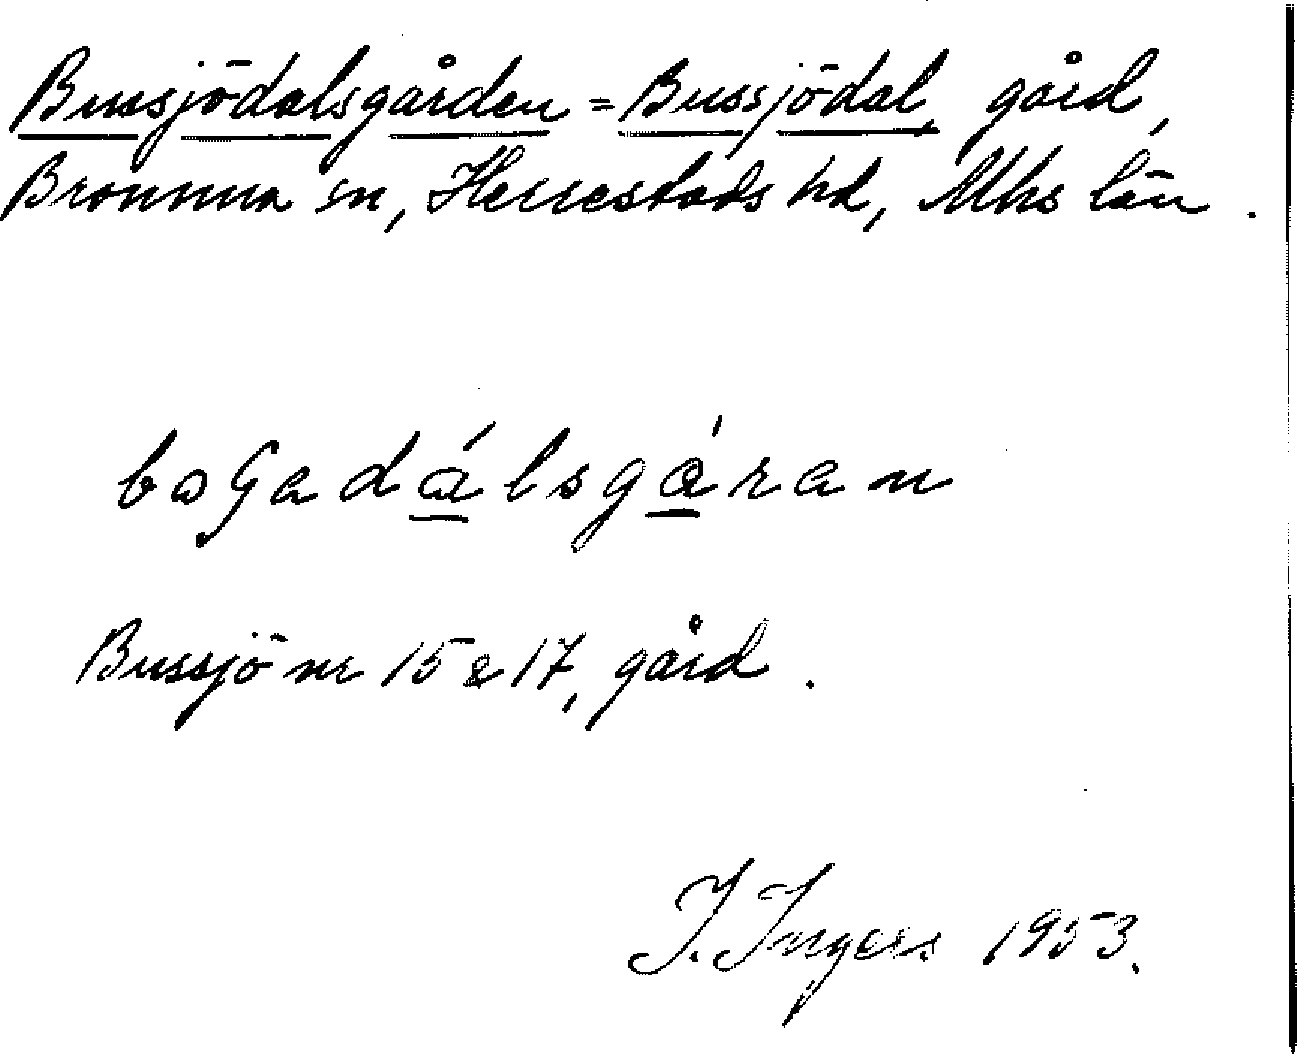 Bussjödalsgården = Bussjödal, gård,
Bromma sn, Herrestads hd, Mhs län.
boGadálsgáran
Bussjö nr 15 & 17, gård.
I. Ingers 1953.